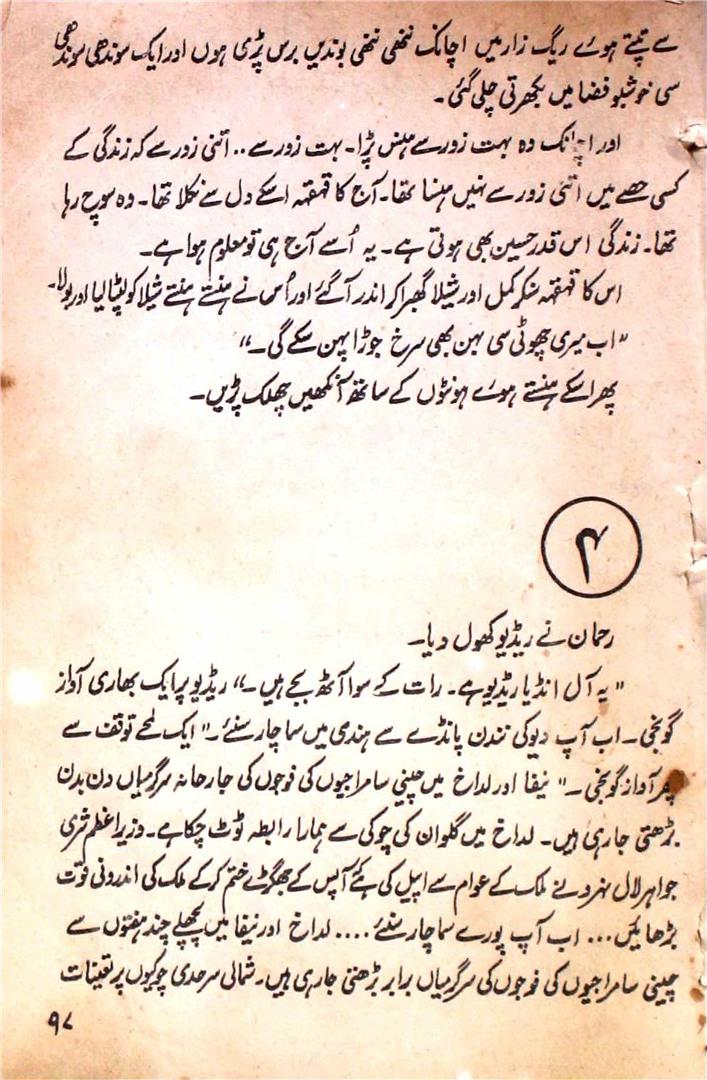 سے تپتے ہوئے ریگ زار میں اچانک ننھی ننھی بوندیں برس پڑی ہوں اور ایک سوندھی سوندھی
سی خوشبو فضا میں بکھرتی چلی گئی۔
اور اچانک وہ بہت زور سے ہنس پڑا۔ بہت زور سے .. اتنی زور سے کہ زندگی کے
کسی حصے میں اتنی زور سے نہیں ہنسا تھا۔ آج کا قہقہہ اسکے دل سے نکلا تھا۔ وہ سوچ رہا
تھا۔ زندگی اس قدر حسین بھی ہوتی ہے۔ یہ اُسے آج ہی تو معلوم ہوا ہے۔
اس کا قہقہہ سنکر کمل اور شیلا گھبرا کر اندر آگئے اور اُس نے ہنستے ہنستے شیلا کو لپٹا لیا اور بولا۔
"اب میری چھوٹی سی بہن بھی سرخ جوڑا پہن سکے گی۔"
پھر اسکے ہنستے ہوئے ہونٹوں کے ساتھ آنکھیں چھلک پڑیں۔
۴
رحمان نے ریڈیو کھول دیا۔
"یہ آل انڈیا ریڈیو ہے۔ رات کے سوا آٹھ بجے ہیں۔" ریڈیو پر ایک بھاری آواز
گونجی۔ اب آپ دیوکی نندن پانڈے سے ہندی میں سماچار سنئے۔" ایک لمحے توقف سے
پھر آواز گونجی۔" نیفا اور لداخ میں چینی سامراجیوں کی فوجوں کی جارحانہ سرگرمیاں دن بدن
بڑھتی جارہی ہیں۔ لداخ میں گلوان کی چوکی سے ہمارا رابطہ ٹوٹ چکا ہے۔ وزیراعظم شری
جواہر لال نہرو نے ملک کے عوام سے اپیل کی ہے کہ آپس کے جھگڑے ختم کرکے ملک کی اندرونی قوت
بڑھائیں ... اب آپ پورے سماچار سنئے .... لداخ اور نیفا میں پچھلے چند ہفتوں سے
چینی سامراجیوں کی فوجوں کی سرگرمیاں برابر بڑھتی جارہی ہیں۔ شمالی سرحدی چوکیوں پر تعینات
۹۷